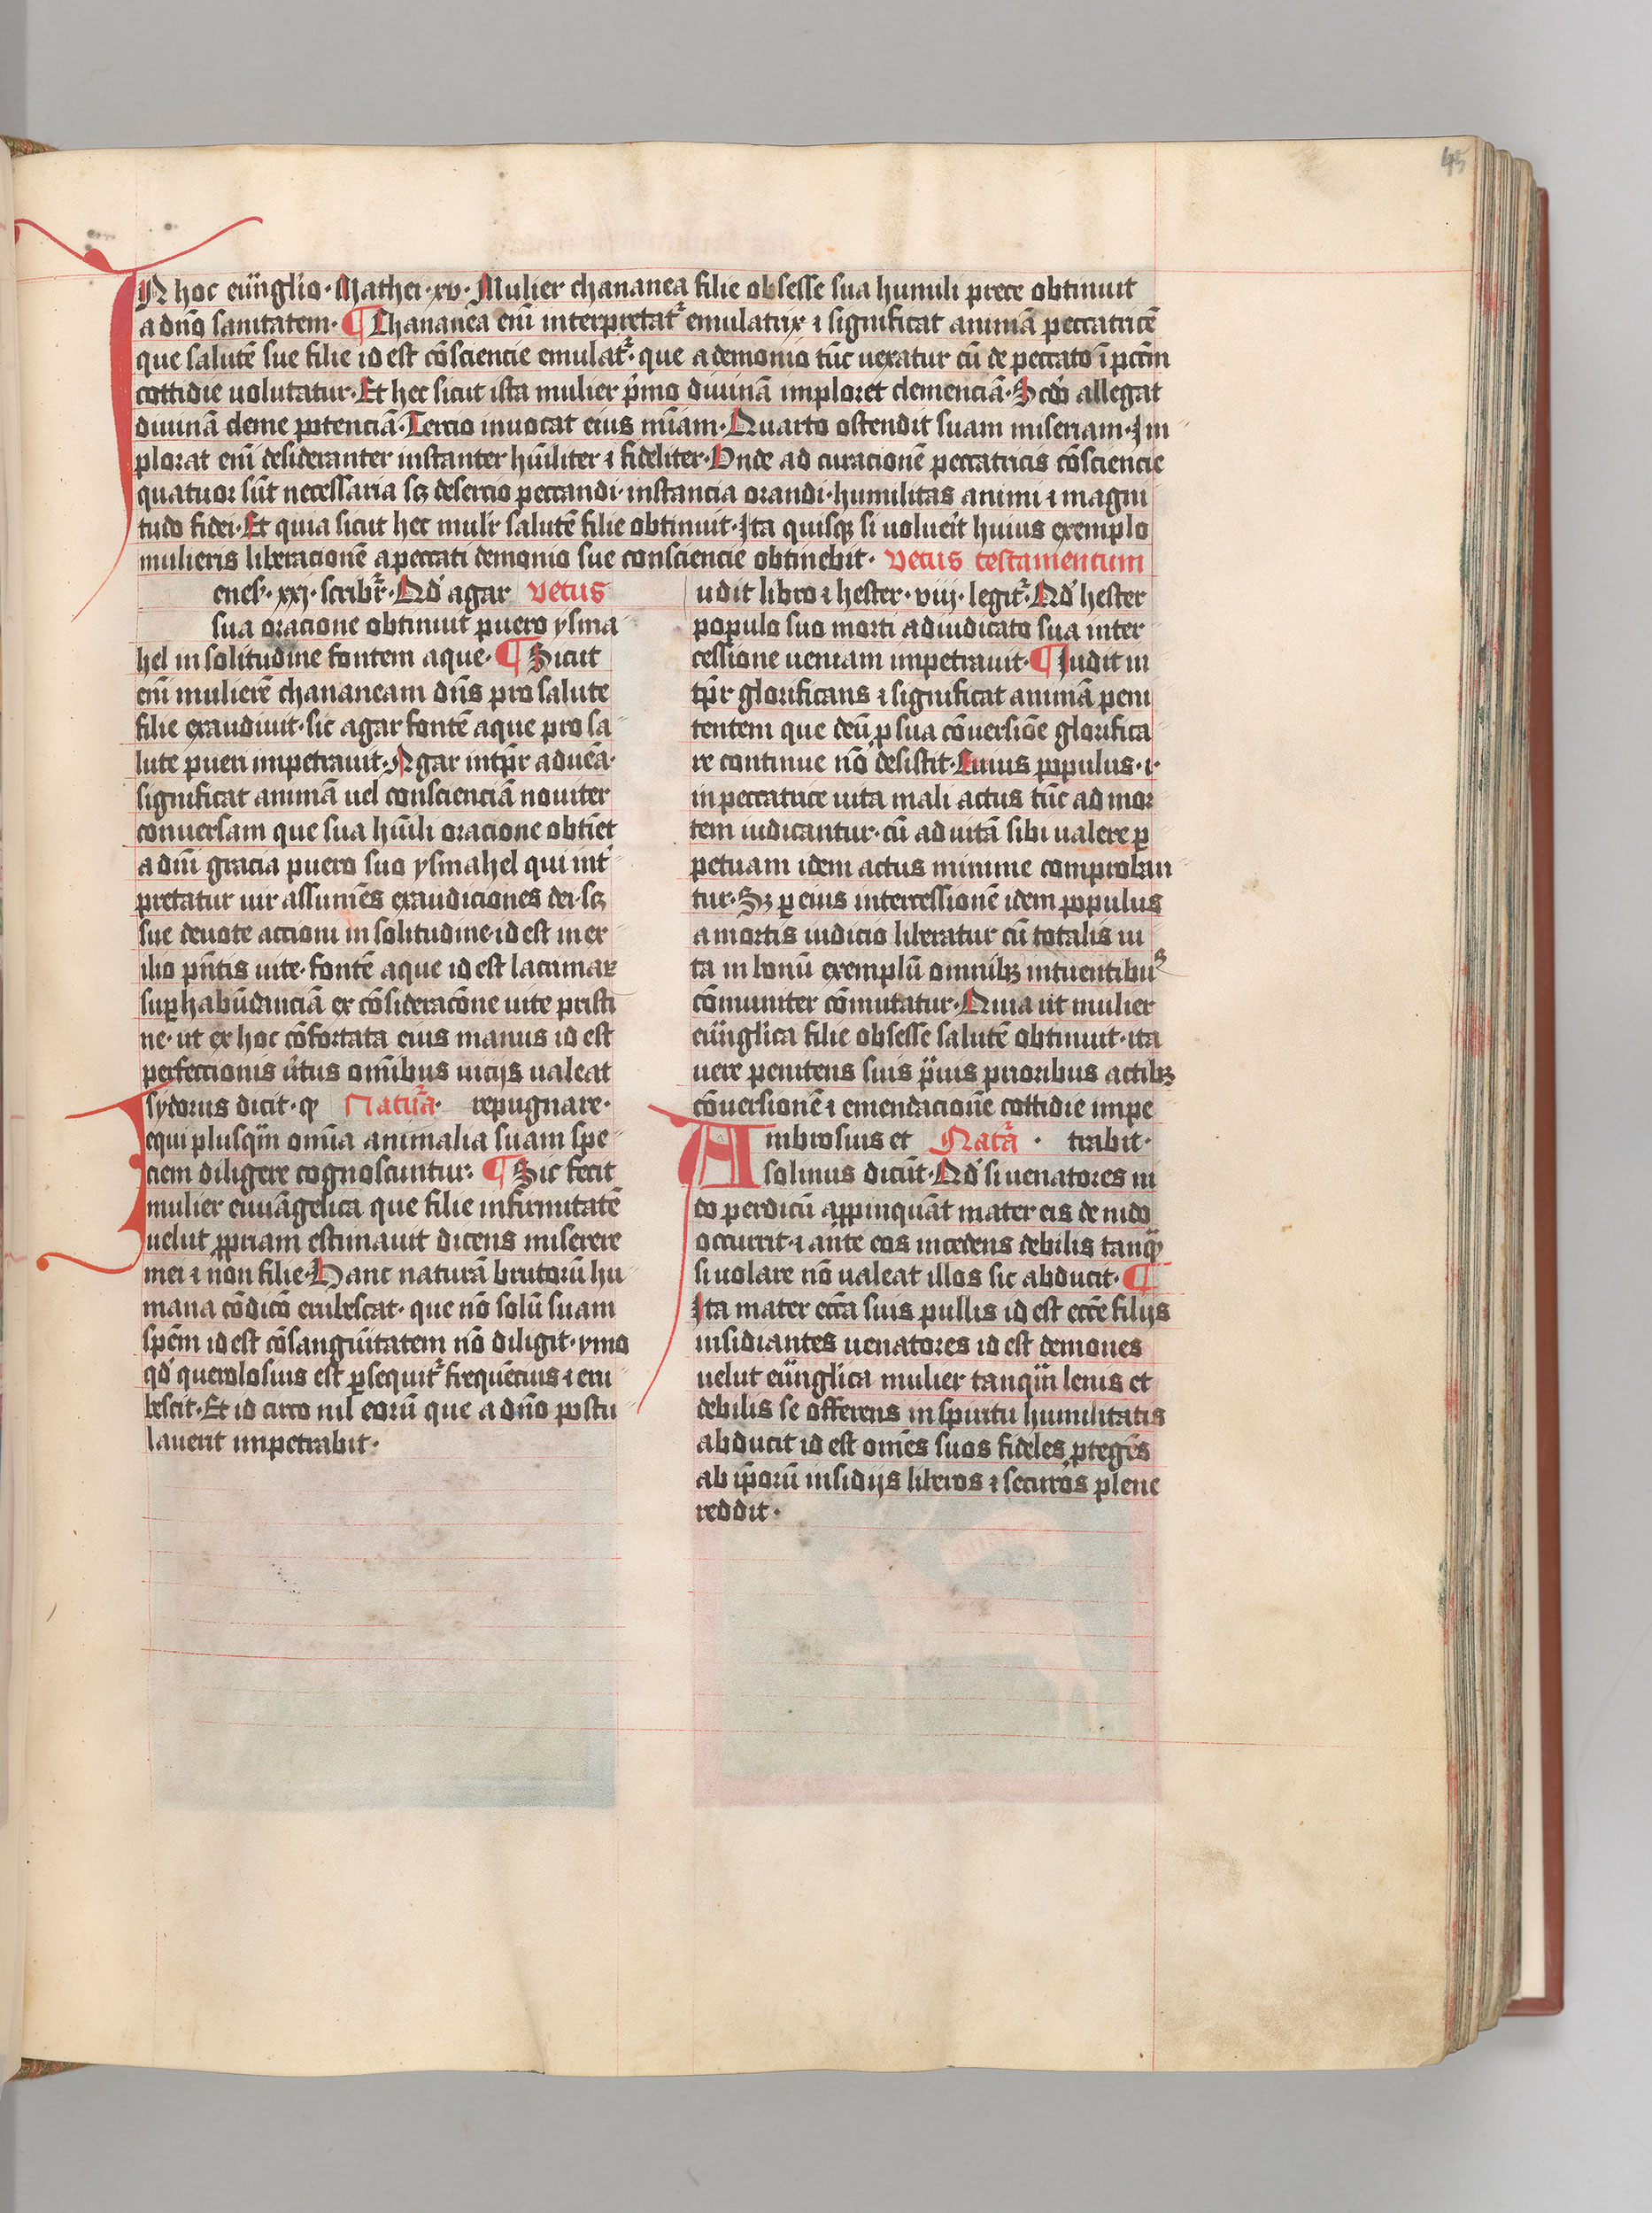 45
IN hoc eūnglio · Mathei · xv · Mulier chananea filie obsesse sua humili prece obtinuit
a dño sanitatem · ¶ Chananea eni̅ interpretat᷑ emulatrix ⁊ significat animā peccatricē
que salutē sue filie id est cōsciencie emulat᷑ · que a demonio tūc uexatur cū de peccato ī pctm̄
cottidie uolutatur · Et hec sicut ista mulier p̄mo diuinā imploret clemenciā · Scdō allegat
diuinā deme potenciā · Tercio inuocat eius mīam · Quarto ostendit suam miseriam · Im
plorat eni̅ desideranter instanter hūiliter ⁊ fideliter · Unde ad curacionē peccatricis cōsciencie
quatuor sūt necessaria sꝫ desercio peccandi · instancia orandi · humilitas animi ⁊ magni
tudo fidei · Et quia sicut hec mulr̄ salutē filie obtinuit · Ita quisqꝫ si uolueīt huius exemplo
mulieris liberacionē a peccati demonio sue consciencie obtinebit · vetus testamentum
enes̄ · xxj · scribr̄ · Qd̄ agar vetus
sua oracione obtinuit puero ysma
hel in solitudine fontem aque · ¶ Sicut
eni̅ mulierē chananeam dn̄s pro salute
filie exaudiuit · sic agar fontē aque pro sa
lute pueri impetrauit · Agar intp̄r aduēa ·
significat animā uel conscienciā nouiter
conuersam que sua hūili oracione obtīet
a diūi gracia puero suo ysmahel qui int̄
pretatur uir assumēs exaudiciones dei · sꝫ
sue deuote accioni in solitudine · id est in ex
ilio pn̄tis uite · fontē aque id est lacrimaꝝ
suꝑhabūdanciā ex cōsideracōne uite pristi
ne · ut ex hoc cōfortata eius manus id est
perfectionis ūtus om̄ibus uicijs ualeat
Isydorus dicit · ꝙ Natur̄a · repugnare ·
equi plusq̄m om̄ia animalia suam spe
ciem diligere cognoscuntur · ¶ Sic fecit
mulier euuāgelica que filie infirmitatē
uelut ꝓpriam estimauit dicens miserere
mei ⁊ non filie · Hanc naturā brutorū hu
mana cōdicō erubescat · que nō solū suam
spēm id est cōsangūitatem nō diligit · ymo
qd̄ querolosius est ꝑsequit᷑ frequēcius ⁊ eru
bescit · Et id circo nil eorū que a dño postu
lauerit impetrabit ·
udit libro ⁊ hester · viij · legit᷑ · Qd̄ hester
populo suo morti adiudicato sua inter
cessione ueniam impetrauit · ¶ Judit in
tp̄r glorificans ⁊ significat animā peni
tentem que deū ꝑ sua cōuersiōe glorifica
re continue nō desistit · Cuius populus · i ·
in peccatrice uita mali actus tūc ad mor
tem iudicantur · cū ad uitā sibi ualere ꝑ
petuam idem actus minime comproban
tur · Sꝫ ꝑ eius intercessionē idem populus
a mortis iudicio liberatur cū totalis ui
ta in bonū exemplū omnibꝫ intuentibus
cōmuniter cōmutatur · Quia ut mulier
eūnglica filie obsesse salutē obtinuit · ita
uere penitens suis p̄uis prioribus actibꝫ
cōuersionē ⁊ emendacionē cottidie impe
Ambrosius et Natr̄a · trabit ·
solinus dicūt · Qd̄ si uenatores ni
do perdicū appinquāt mater eis de nido
occurrit · ⁊ ante eos incedens debilis tanq̄
si uolare nō ualeat illos sic abducit · ¶
Ita mater ecc̄a suis pullis id est ecc̄e filijs
insidiantes uenatores id est demones
uelut eūnglica mulier tanq̄m lenis et
debilis se offerens in spiritu humilitatis
abducit id est omēs suos fideles ꝓtegēs
ab ip̄orū insidijs liberos ⁊ securos plene
reddit ·